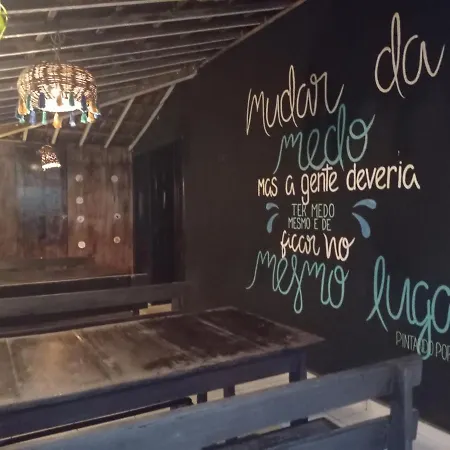 mudar da
medo
mas a gente deveria
TER MEDO
MESMO E DE
ficar no
mesmo luga
PINTANDO POR